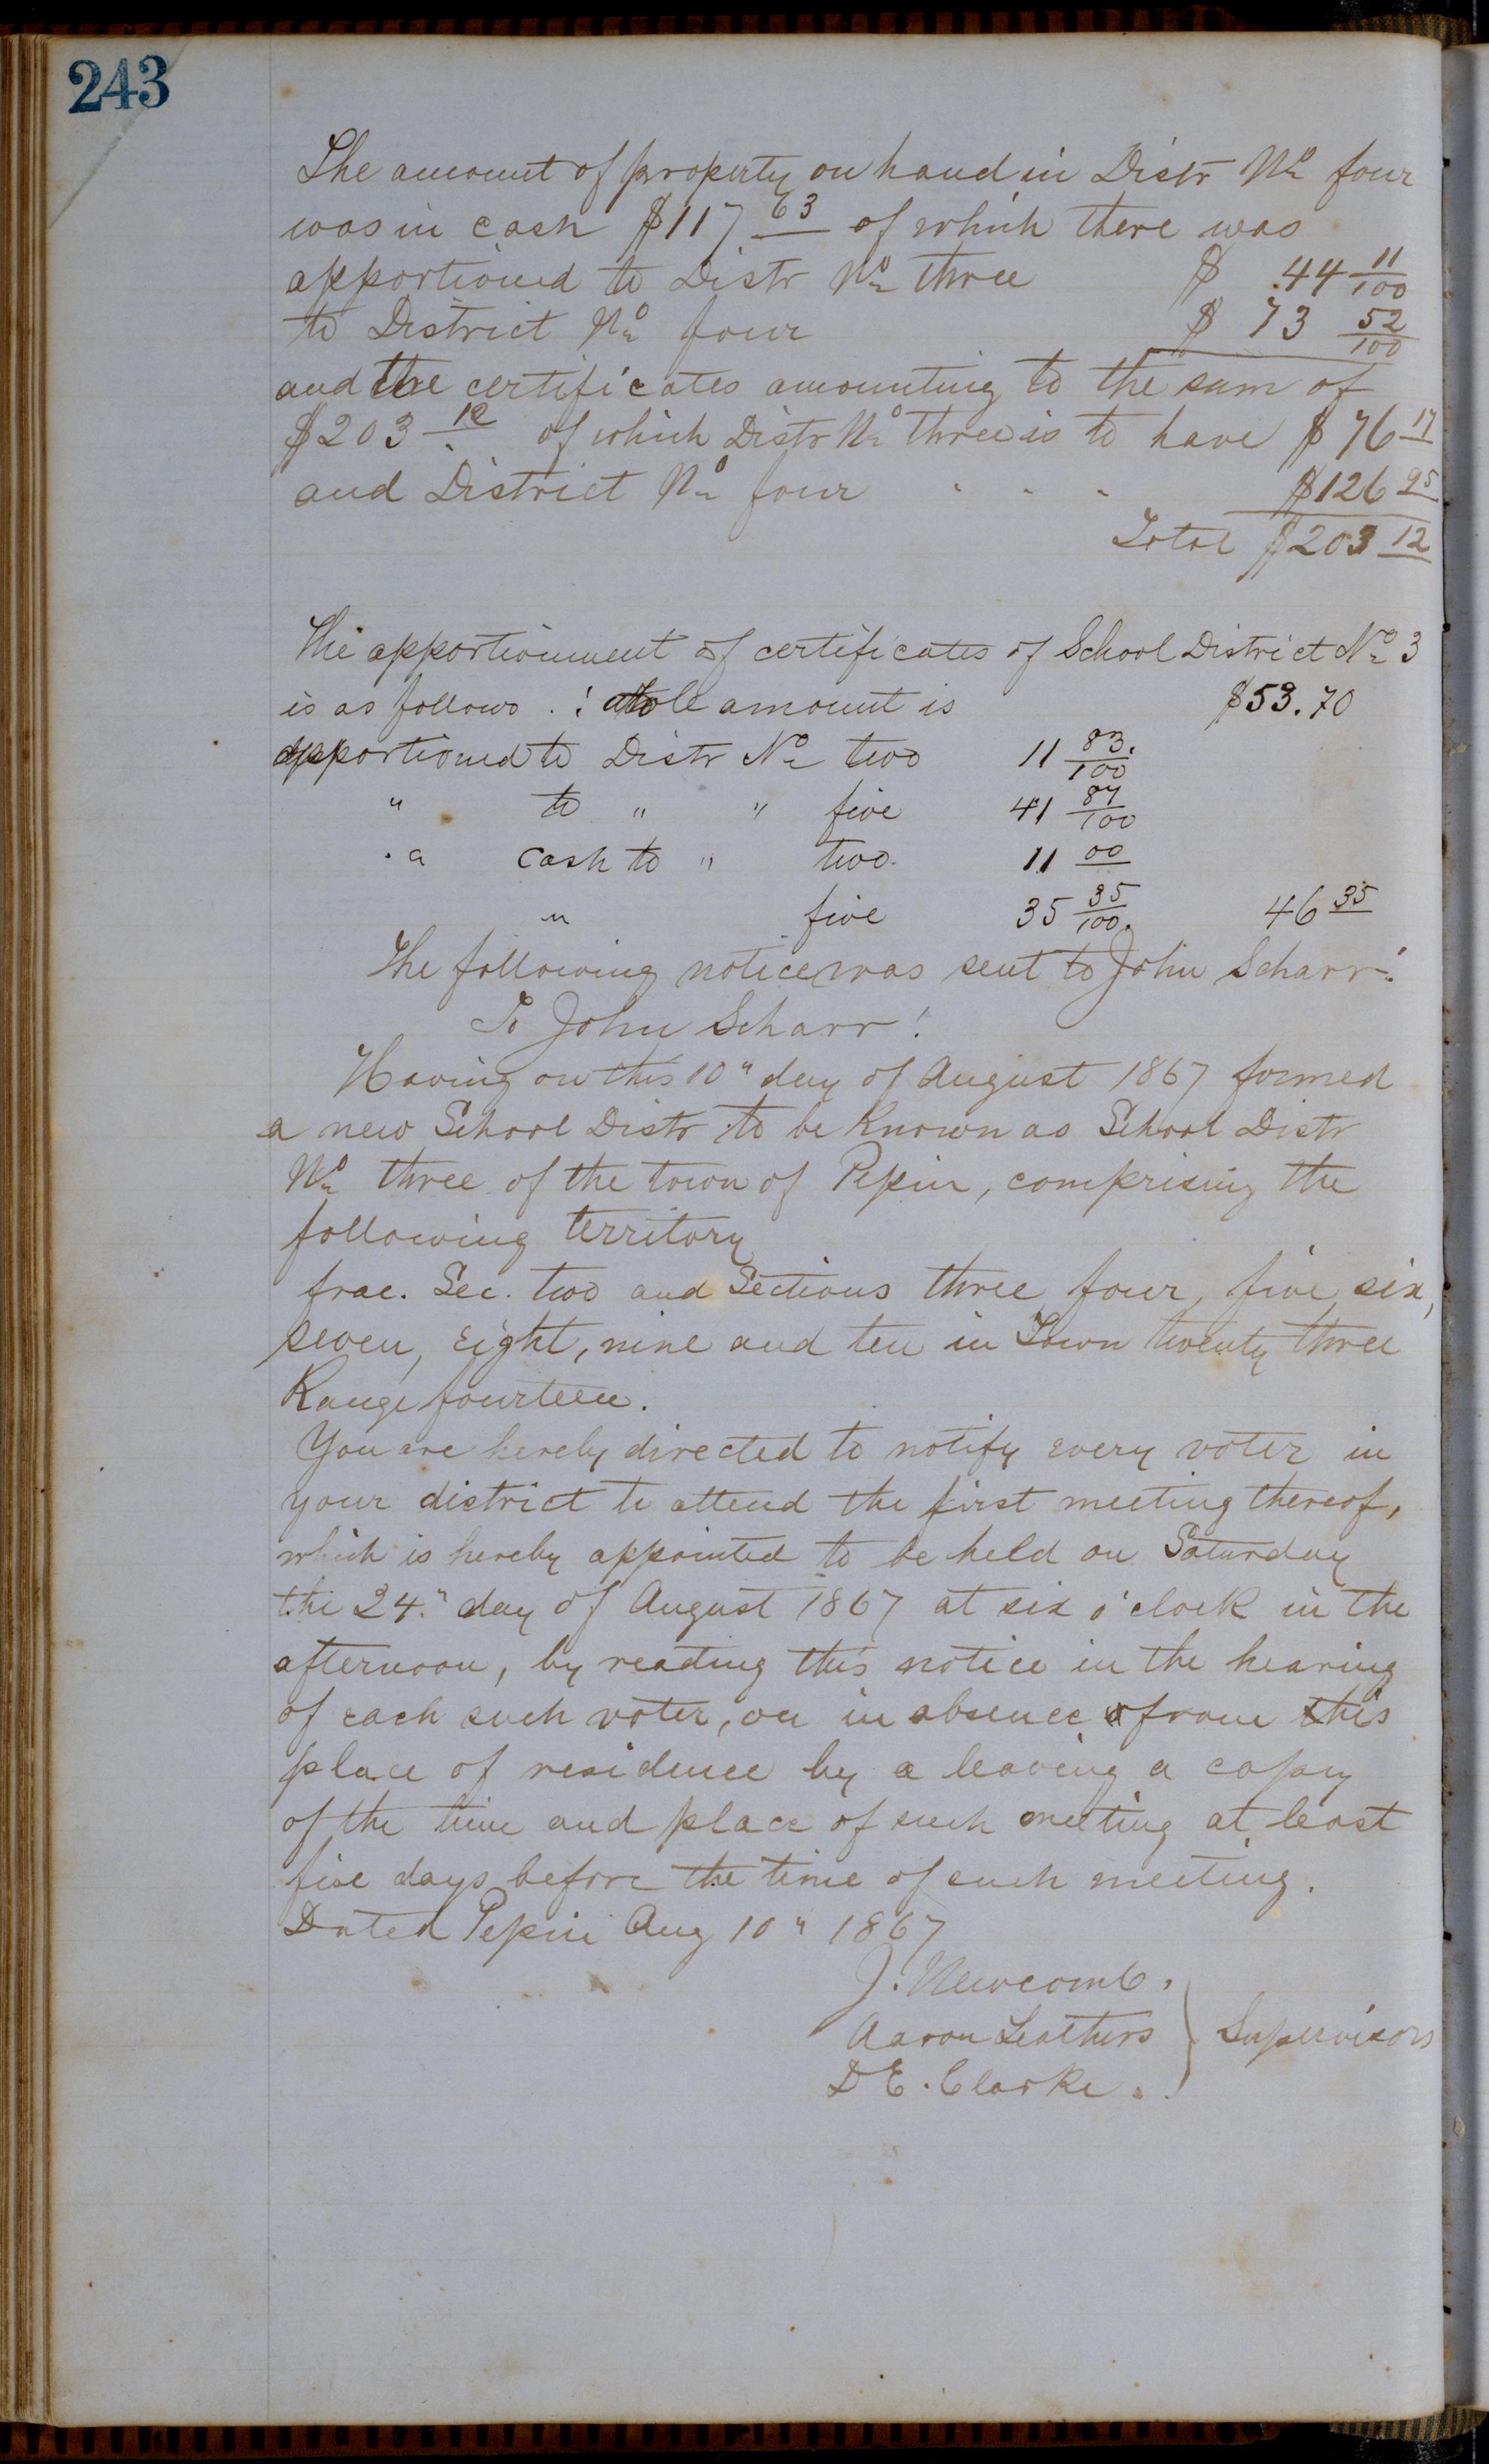 243
The amount of property on hand in Distr No four
was in cash $117 63 of which there was
apportioned to Distr No three $ 44 11/100
to District No four $ 73 52/100
and the certificates amounting to the sum of
$203 12 of which Distr No three is to have $ 76 17
and District No four . . . $126 95
Total $203 12
The apportionment of certificates of School District No 3
is as follows . : whole amount is $53.70
apportioned to Distr No two 11 83/100
" to " " five 41 87/100
" cash to " two. 11 00
" five 35 35/100. 46 35
The following notice was sent to John Scharr:
To John Scharr!
Having on this 10" day of August 1867 formed
a new School Distr to be Known as School Distr
No three of the town of Pepin, comprising the
following territory
frac. Sec. two and Sections three four, five, six,
seven, eight, nine and ten in Town twenty three
Range fourteen.
You are hereby directed to notify every voter in
your district to attend the first meeting thereof,
which is hereby appointed to be held on Saturday
the 24." day of August 1867 at six o'clock in the
afternoon, by reading this notice in the hearing
of each such voter, or in absence from his
place of residence by a leaving a copy
of the time and place of such meeting at least
five days before the time of such meeting.
Dated Pepin Aug 10" 1867
J. Newcomb.
Aaron Leathers } Supervisors
D E. Clarke.